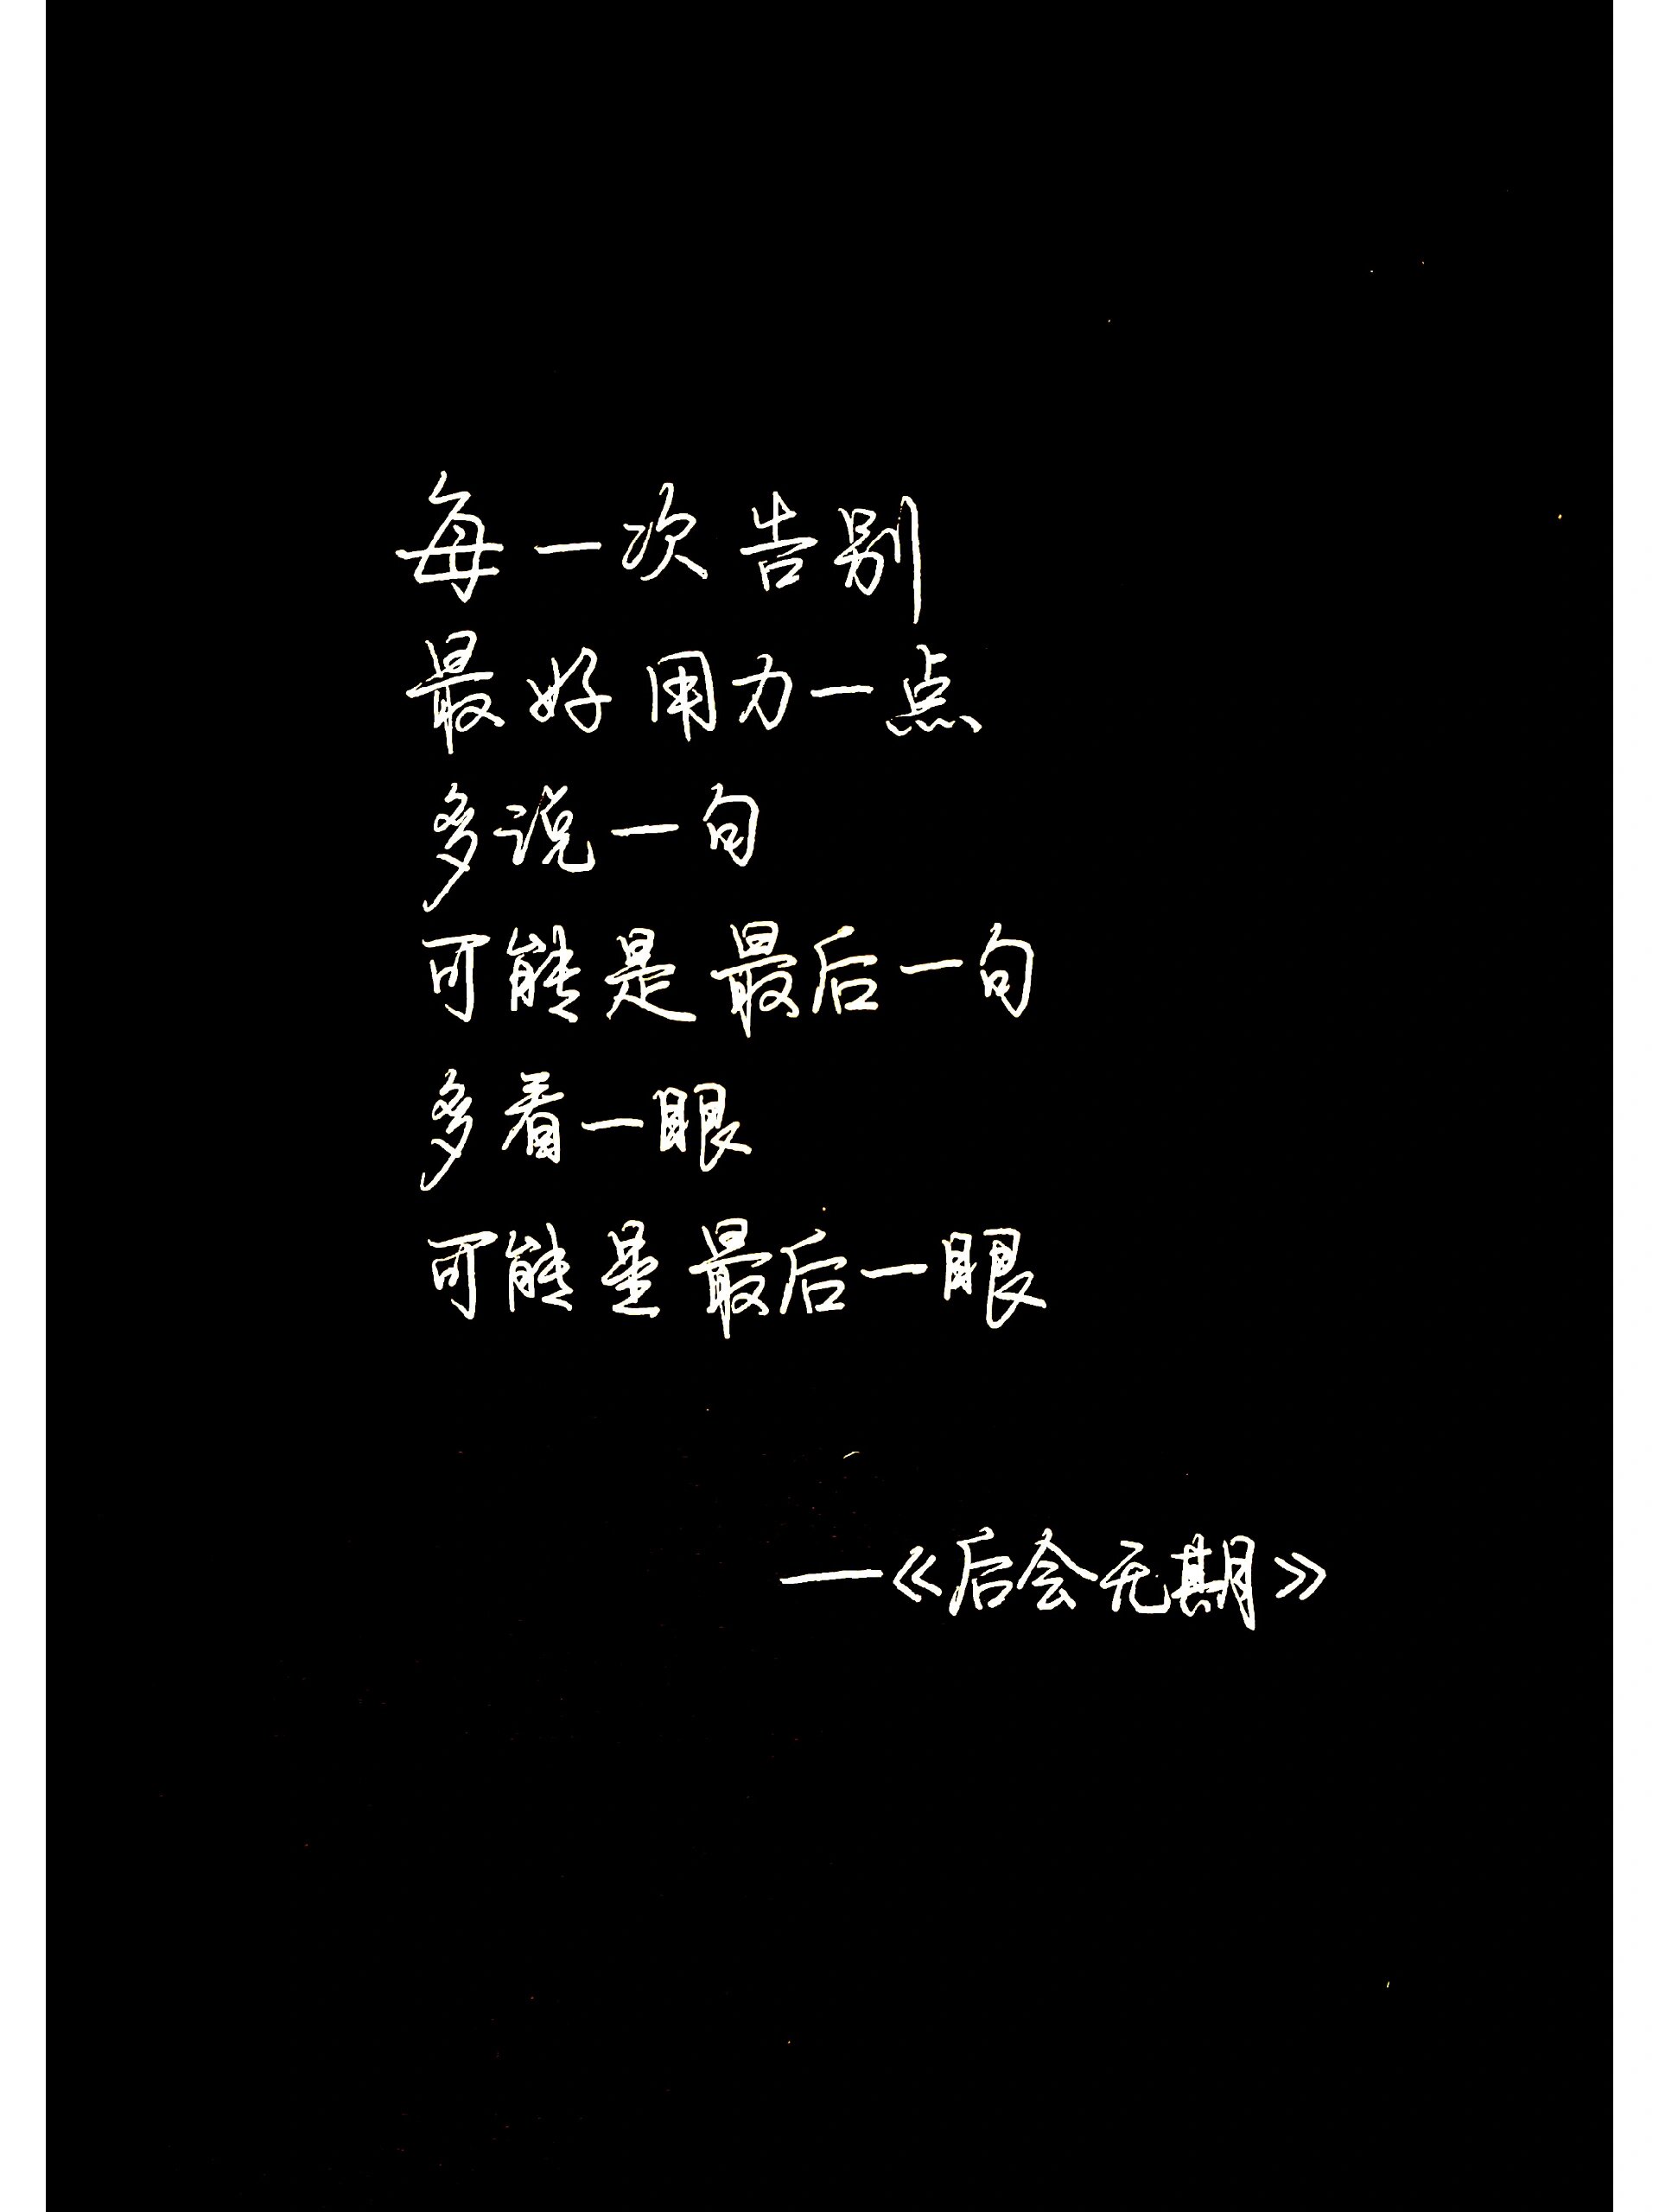 每一次告别
最好用力一点
多说一句
可能是最后一句
多看一眼
可能是最后一眼
—《后会无期》